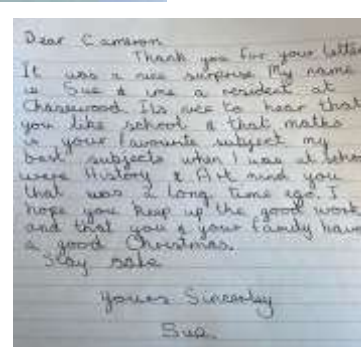 Dear Cameron
Thank you for your letter
It was a nice surprise My name
is Sue & ime a resident at
Chasewood Its nice to hear that
you like school & that maths
is your favourite subject my
best subjects when I was at school
were History & Art mind you
that was a long time ago. I
hope you keep up the good work
and that you & your family have
a good Christmas.
Stay safe
yours Sincerley
Sue.